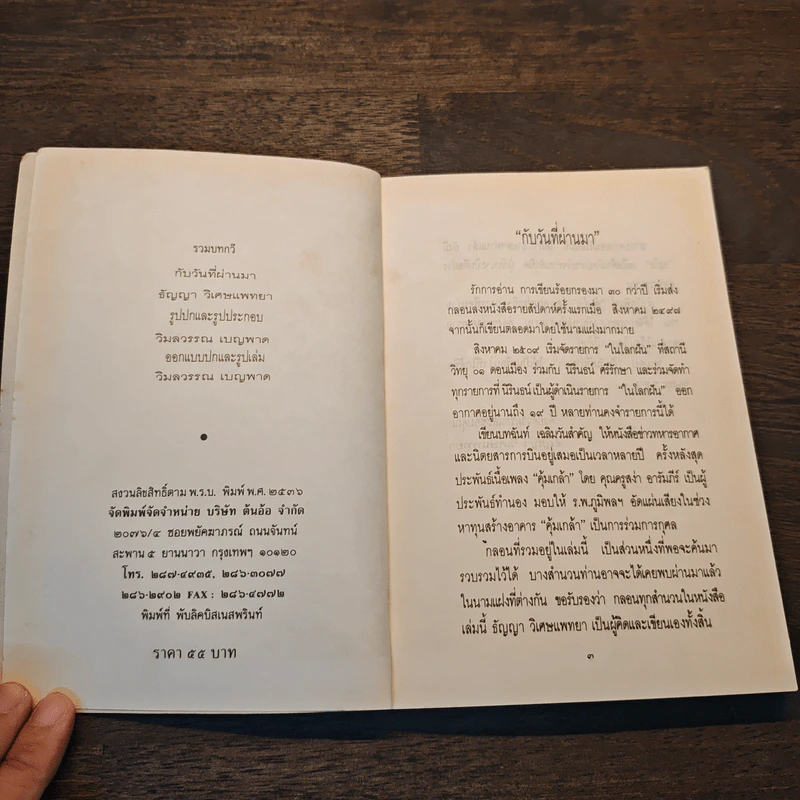 รวมบทกวี
กับวันที่ผ่านมา
ธัญญา วิเศษแพทยา
รูปปกและรูปประกอบ
วิมลวรรณ เบญพาด
ออกแบบปกและรูปเล่ม
วิมลวรรณ เบญพาด
สงวนลิขสิทธิ์ตาม พ.ร.บ. พิมพ์ พ.ศ. ๒๕๓๖
จัดพิมพ์จัดจำหน่าย บริษัท ต้นอ้อ จำกัด
๒๐๗๖/๔ ซอยพยัคฆาภรณ์ ถนนจันทน์
สะพาน ๕ ยานนาวา กรุงเทพฯ ๑๐๑๒๐
โทร. ๒๘๗-๔๙๓๕, ๒๘๖-๓๐๗๗
๒๘๖-๒๙๐๒ FAX : ๒๘๖-๔๗๗๒
พิมพ์ที่ พับลิคบิสเนสพรินท์
ราคา ๕๕ บาท
“กับวันที่ผ่านมา”
รักการอ่าน การเขียนร้อยกรองมา ๓๐ กว่าปี เริ่มส่ง
กลอนลงหนังสือรายสัปดาห์ครั้งแรกเมื่อ สิงหาคม ๒๔๙๘
จากนั้นก็เขียนตลอดมาโดยใช้นามแฝงมากมาย
สิงหาคม ๒๕๐๙ เริ่มจัดรายการ “ในโลกฝัน” ที่สถานี
วิทยุ ๐๑ ดอนเมือง ร่วมกับ นิรินธน์ ศรีรักษา และร่วมจัดทำ
ทุกรายการที่ นิรินธน์ เป็นผู้ดำเนินรายการ “ในโลกฝัน” ออก
อากาศอยู่นานถึง ๑๙ ปี หลายท่านคงจำรายการนี้ได้
เขียนบทฉันท์ เฉลิมวันสำคัญ ให้หนังสือข่าวทหารอากาศ
และนิตยสารการบินอยู่เสมอเป็นเวลาหลายปี ครั้งหลังสุด
ประพันธ์เนื้อเพลง “คุ้มเกล้า” โดย คุณครูสง่า อารัมภีร์ เป็นผู้
ประพันธ์ทำนอง มอบให้ ร.พ.ภูมิพลฯ อัดแผ่นเสียงในช่วง
หาทุนสร้างอาคาร “คุ้มเกล้า” เป็นการร่วมการกุศล
กลอนที่รวมอยู่ในเล่มนี้ เป็นส่วนหนึ่งที่พอจะค้นมา
รวบรวมไว้ได้ บางสำนวนท่านอาจจะได้เคยพบผ่านมาแล้ว
ในนามแฝงที่ต่างกัน ขอรับรองว่า กลอนทุกสำนวนในหนังสือ
เล่มนี้ ธัญญา วิเศษแพทยา เป็นผู้คิดและเขียนเองทั้งสิ้น
๓